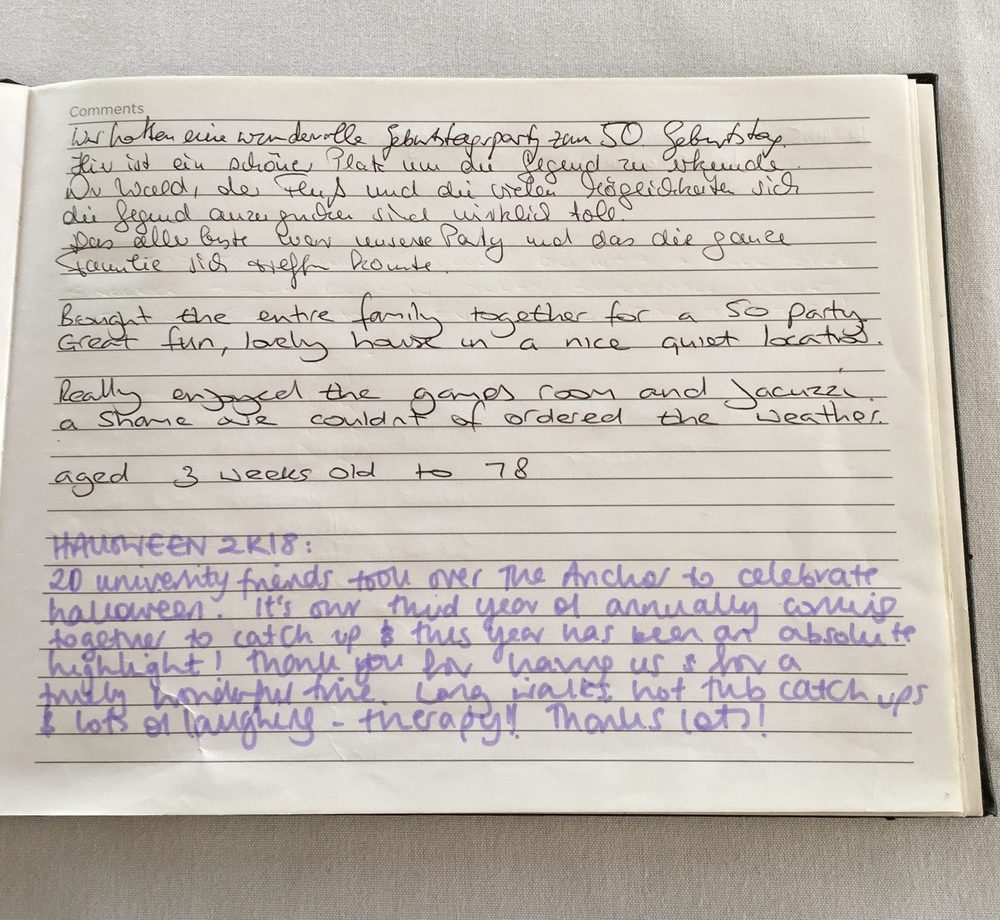 Comments
Wir hatten eine wundervolle Geburtstagsparty zum 50 Geburtstag.
Hier ist ein schöner Platz um die Gegend zu erkunde.
Der Wald, der Fluß und die vielen Möglichkeiten sich
die Gegend anzugucken sind wirklich toll.
Das aller beste war unsere Party und das die ganze
Familie sich treffen konnte.
Bought the entire family together for a 50 party
Great fun, lovely house in a nice quiet location.
Really enjoyed the games room and Jacuzzi.
a shame we couldnt of ordered the weather.
aged 3 weeks old to 78
HALLOWEEN 2K18:
20 university friends took over The Anchor to celebrate
halloween. It's our third year of annually coming
together to catch up & this year has been an absolute
highlight! Thank you for having us & for a
truly wonderful time. Long walks hot tub catch ups
& lots of laughing - therapy!! Thanks lots!